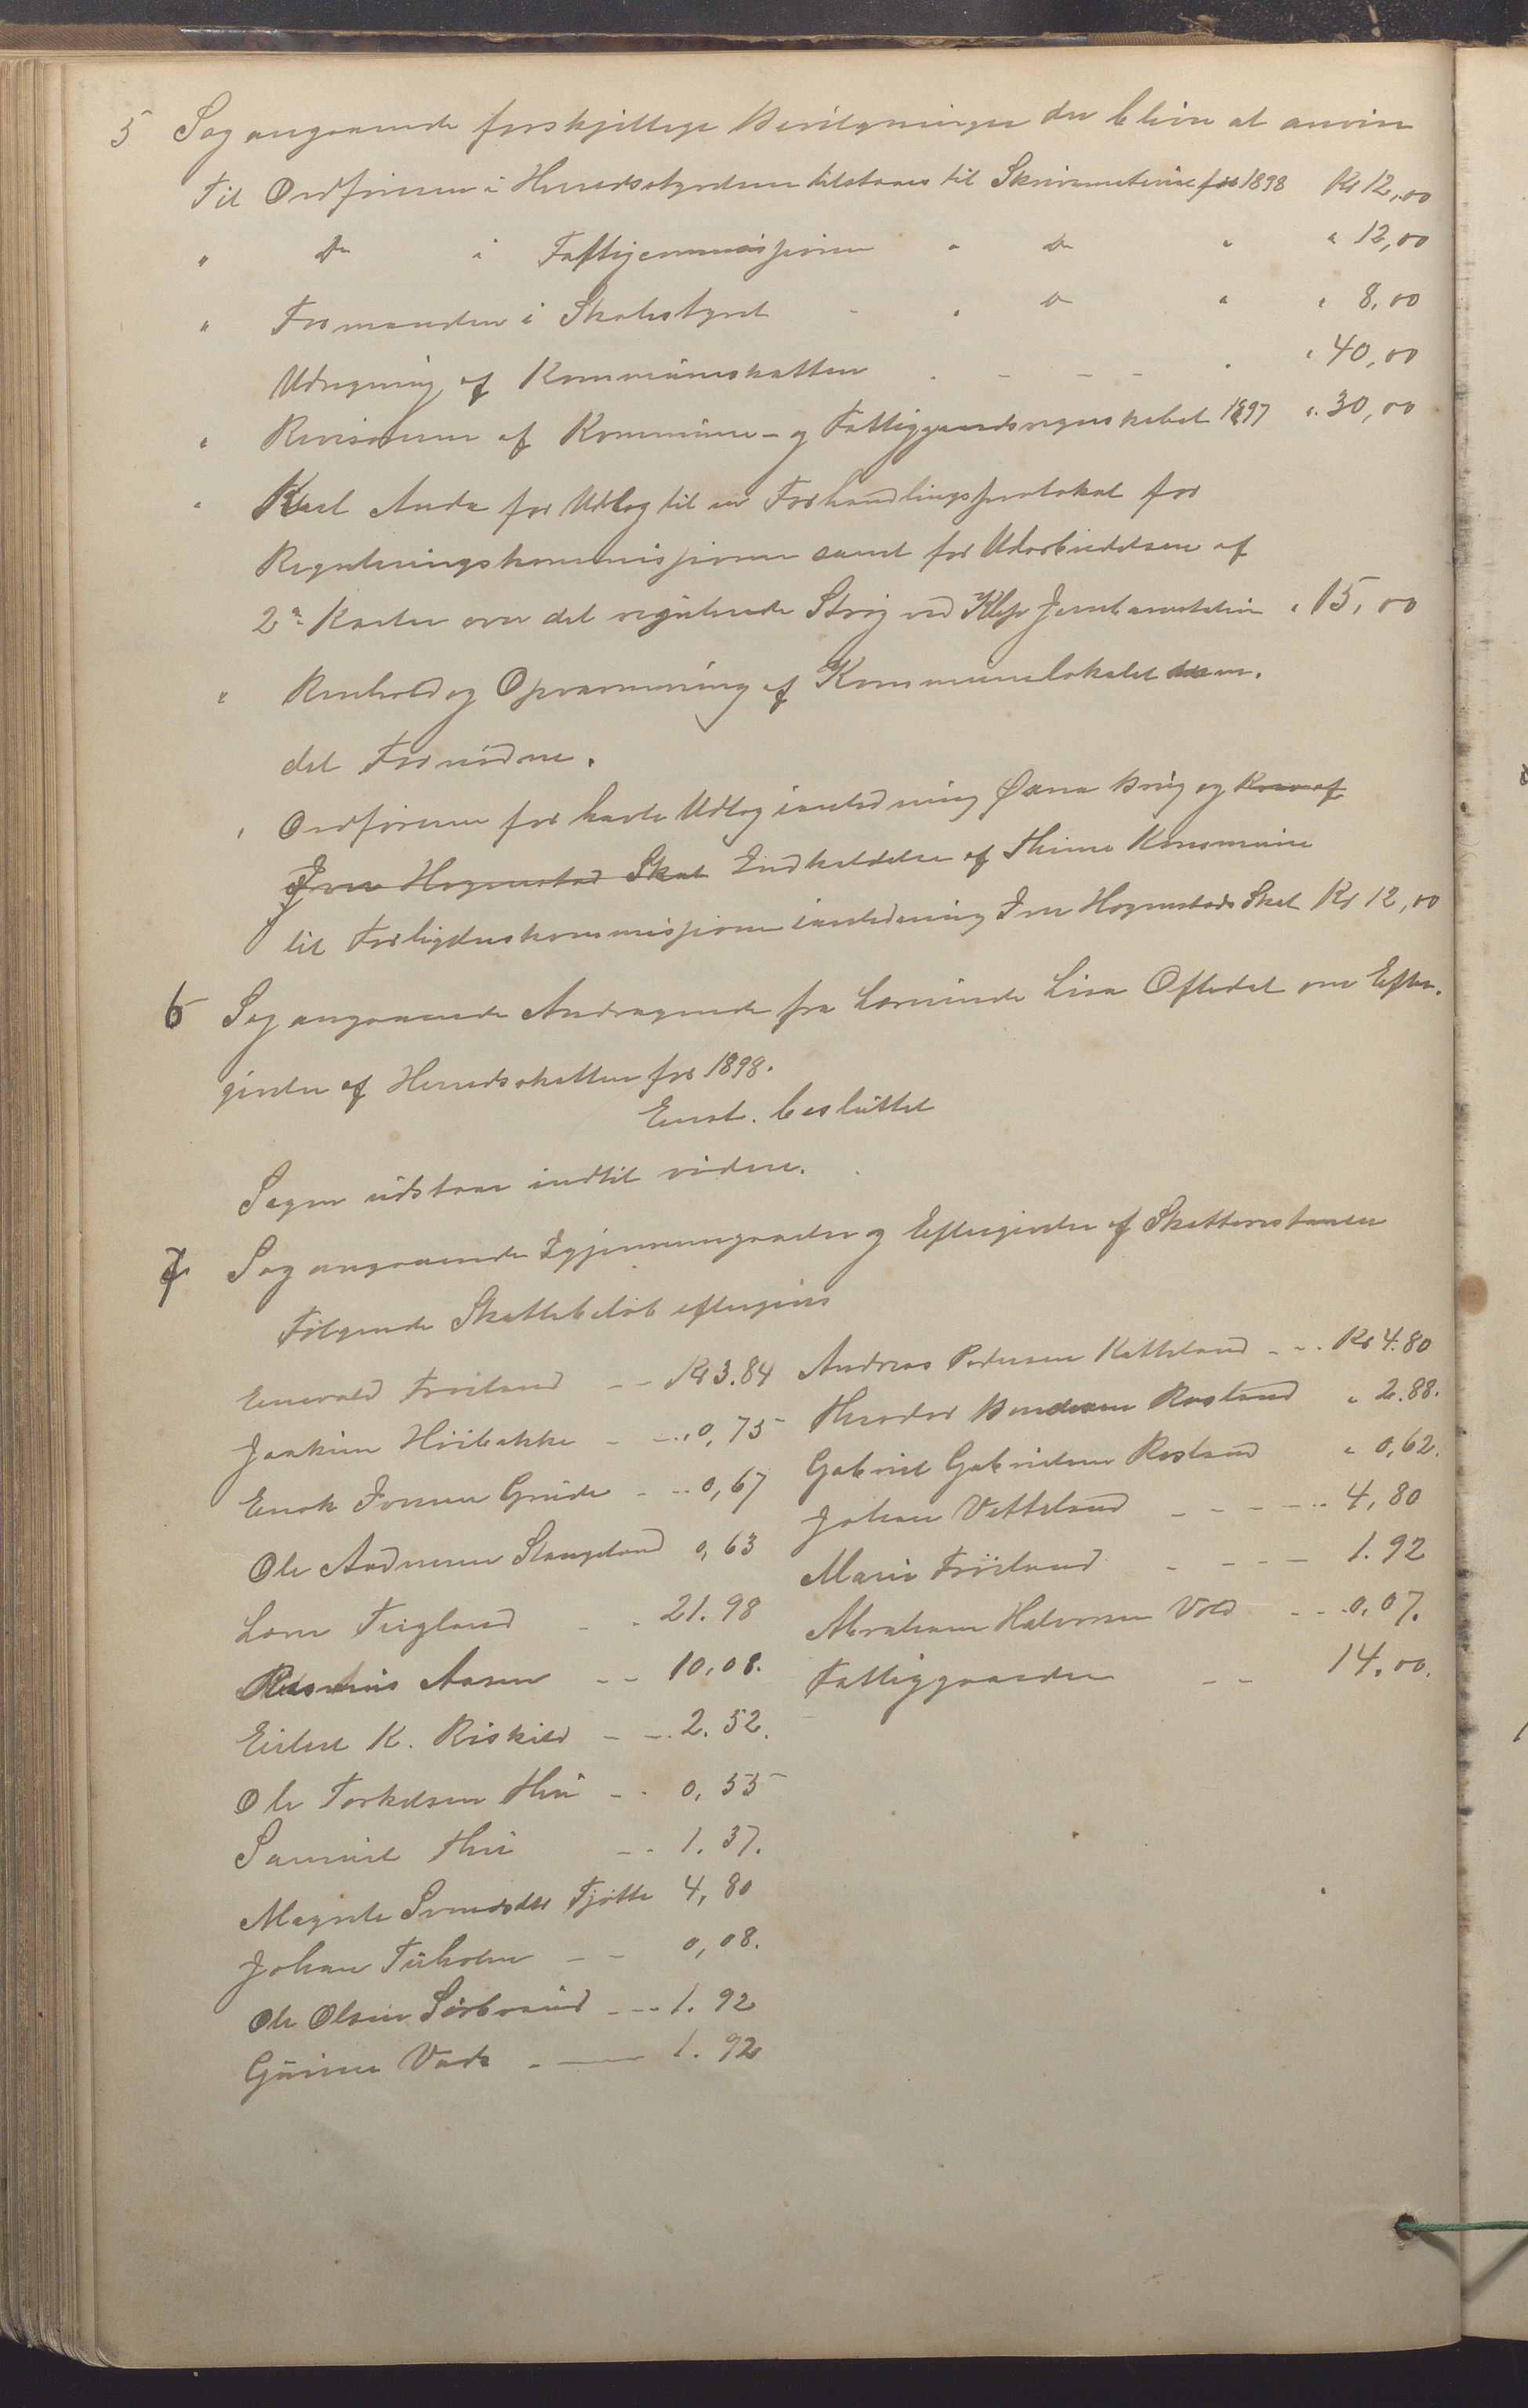 5 Sag angaaende forskjellige Bevilgninger der bliver at anvise
Til Ordføreren i Herredsstyrelsen tilstaaes til Skrivematerie for 1898 Kr 12,00
" Do i Fattigcommissjonen " Do " " 12,00
" Formanden i Skolestyret " Do " " 8,00
Udregning af Kommuneskatten " 40,00
" Revisionen af Kommune- og Fattiggaardsregnskabet 1897 " 30,00
" Karl Anda for Udlæg til en Forhandlingsprotokol for
Reguleringskommissjonen samt for Udarbeidelsen af
2 Karter over det regulerede Strøg ved Klep Jernbanestation " 15,00
" Renhold og Opvarmning af Kommunelokalet
det Fornødne.
" Ordføreren for havte Udlæg ianledning Øxna Brug og Krav af
Iver Hognestad Skat Indkaldelse af Thime Kommune
til Forligelseskommissjonen ianledning Iver Hognestads Skat Kr 12,00
6 Sag angaaende Andragende fra Lærerinde Lisa Oftedal om Efter-
givelse af Herredsskatten for 1898.
Enst. besluttet
Sagen udstaar indtil videre.
7 Sag angaaende Igjennemgaaelse og Eftergivelse af Skatterestancer
Følgende Skattebeløb eftergives
Enevald Frøiland -- Kr 3.84
Joakim Høibakke - -- 0,75
Enok Iversen Grude - -- 0,67
Ole Andersen Stangeland 0,63
Lars Tegland - - 21.98
Rasmus Aasen -- 10,08.
Eilert K. Riskild - -- 2.52.
Ole Torkelsen Hei - - 0,55
Samuel Hei -- 1.37.
Magrete Svendsdtr Tjøtte 4,80
Johan Tuholen -- 0,08.
Ole Olsen Sørbraud --- 1.92
Gunner Vada - --- 1.92
Andreas Pedersen Katteland - -. Kr 4.80
Theodor Bendixen Rosland " 2.88.
Gabriel Gabrielsen Rosland " 0,62.
Johan Vetteland - - - -.. 4,80
Marie Frøiland - - - - 1.92
Abraham Halvorsen Vold - - .0,07.
Fattiggaarden -- 14,00.